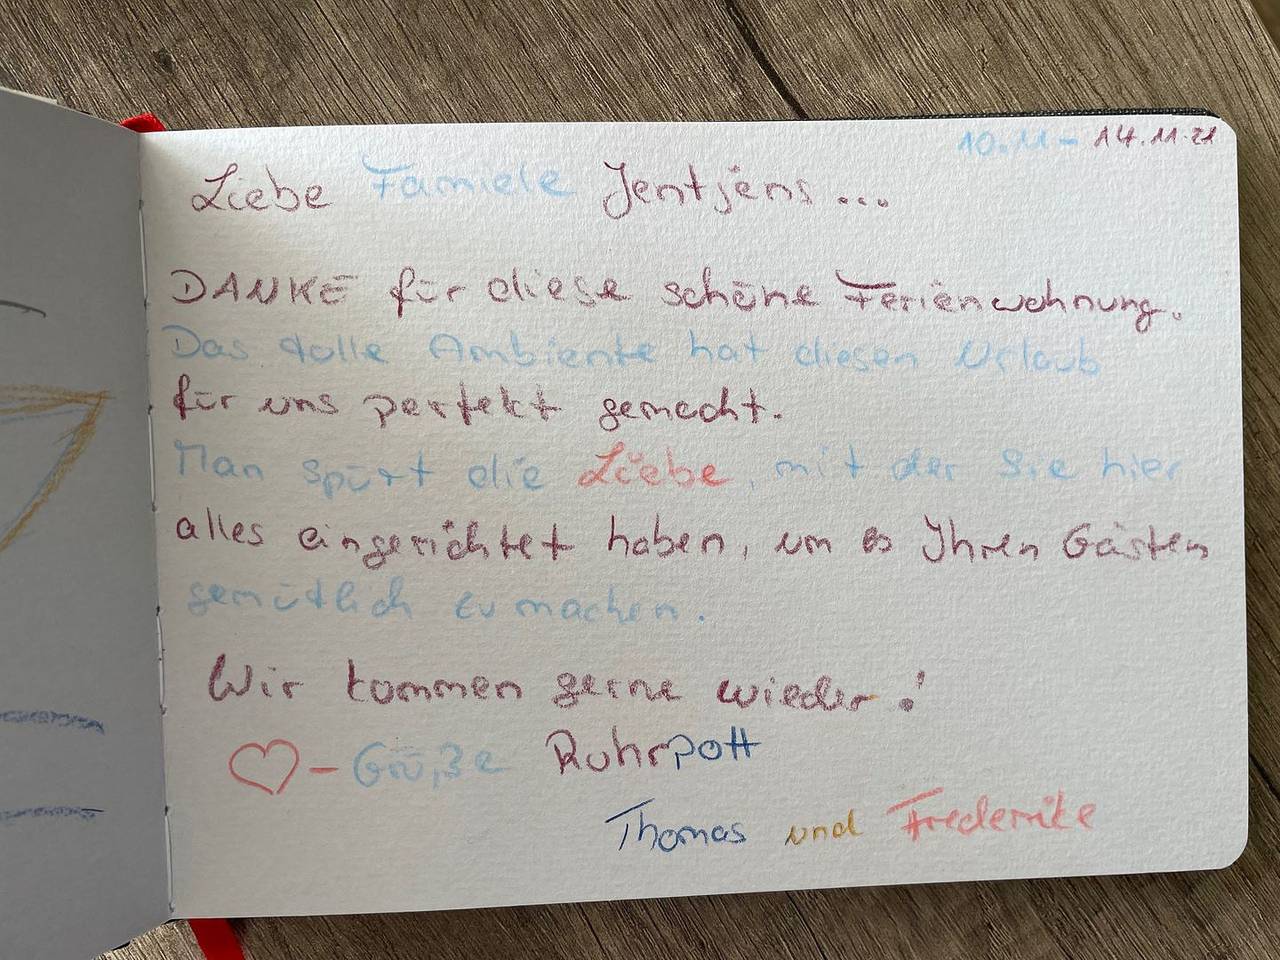 10.11 - 14.11.21
Liebe Familie Jentjens...
DANKE für diese schöne Ferienwohnung.
Das tolle Ambiente hat diesen Urlaub
für uns perfekt gemacht.
Man spürt die Liebe, mit der Sie hier
alles eingerichtet haben, um es Ihren Gästen
gemütlich zu machen.
Wir kommen gerne wieder!
♡ - Grüße Ruhrpott
Thomas und Frederike